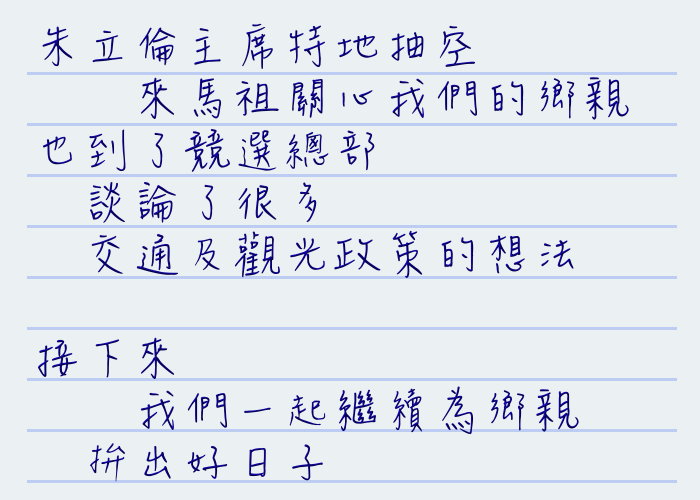 朱立倫主席特地抽空
來馬祖關心我們的鄉親
也到了競選總部
談論了很多
交通及觀光政策的想法
接下來
我們一起繼續為鄉親
拚出好日子